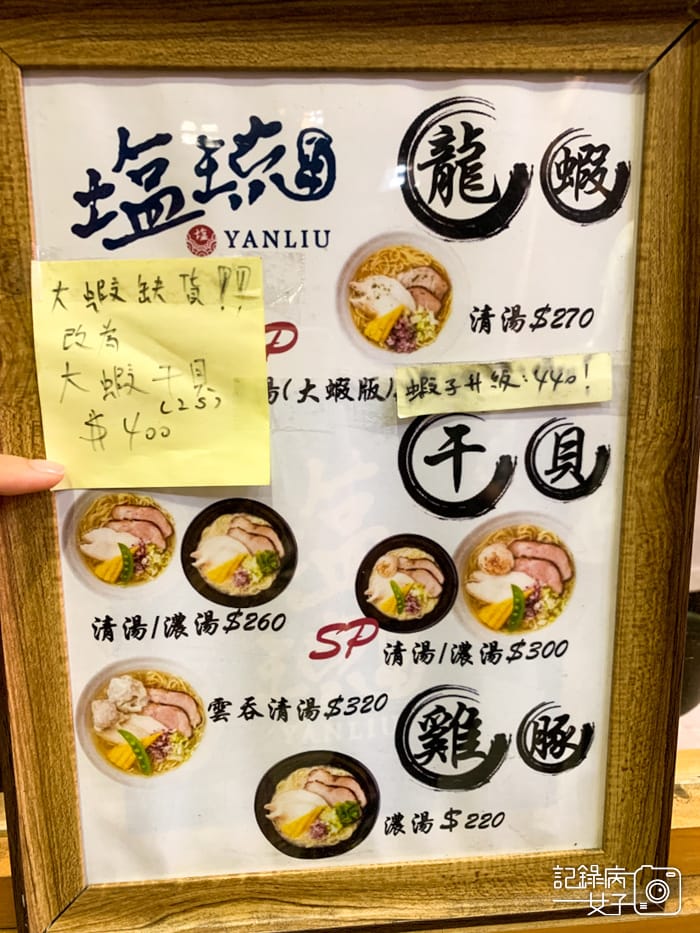 塩琉
塩 YANLIU
龍蝦
大蝦缺貨!!
改為
大蝦干貝
(2S)
$400
清湯$270
P
湯(大蝦版)
蝦子升級:440!
干貝
清湯/濃湯$260
SP
清湯/濃湯$300
雲吞清湯$320
雞豚
濃湯$220
記錄病
女子